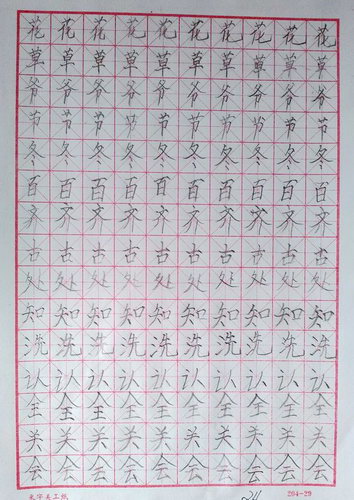 花花花花花花花花花花
草草草草草草草草草草
爷爷爷爷爷爷爷爷爷爷
节节节节节节节节节节
冬冬冬冬冬冬冬冬冬冬
百百百百百百百百百百
齐齐齐齐齐齐齐齐齐齐
古古古古古古古古古古
处处处处处处处处处处
知知知知知知知知知知
洗洗洗洗洗洗洗洗洗洗
认认认认认认认认认认
全全全全全全全全全全
关关关关关关关关关关
会会会会会会会会会会
204-29